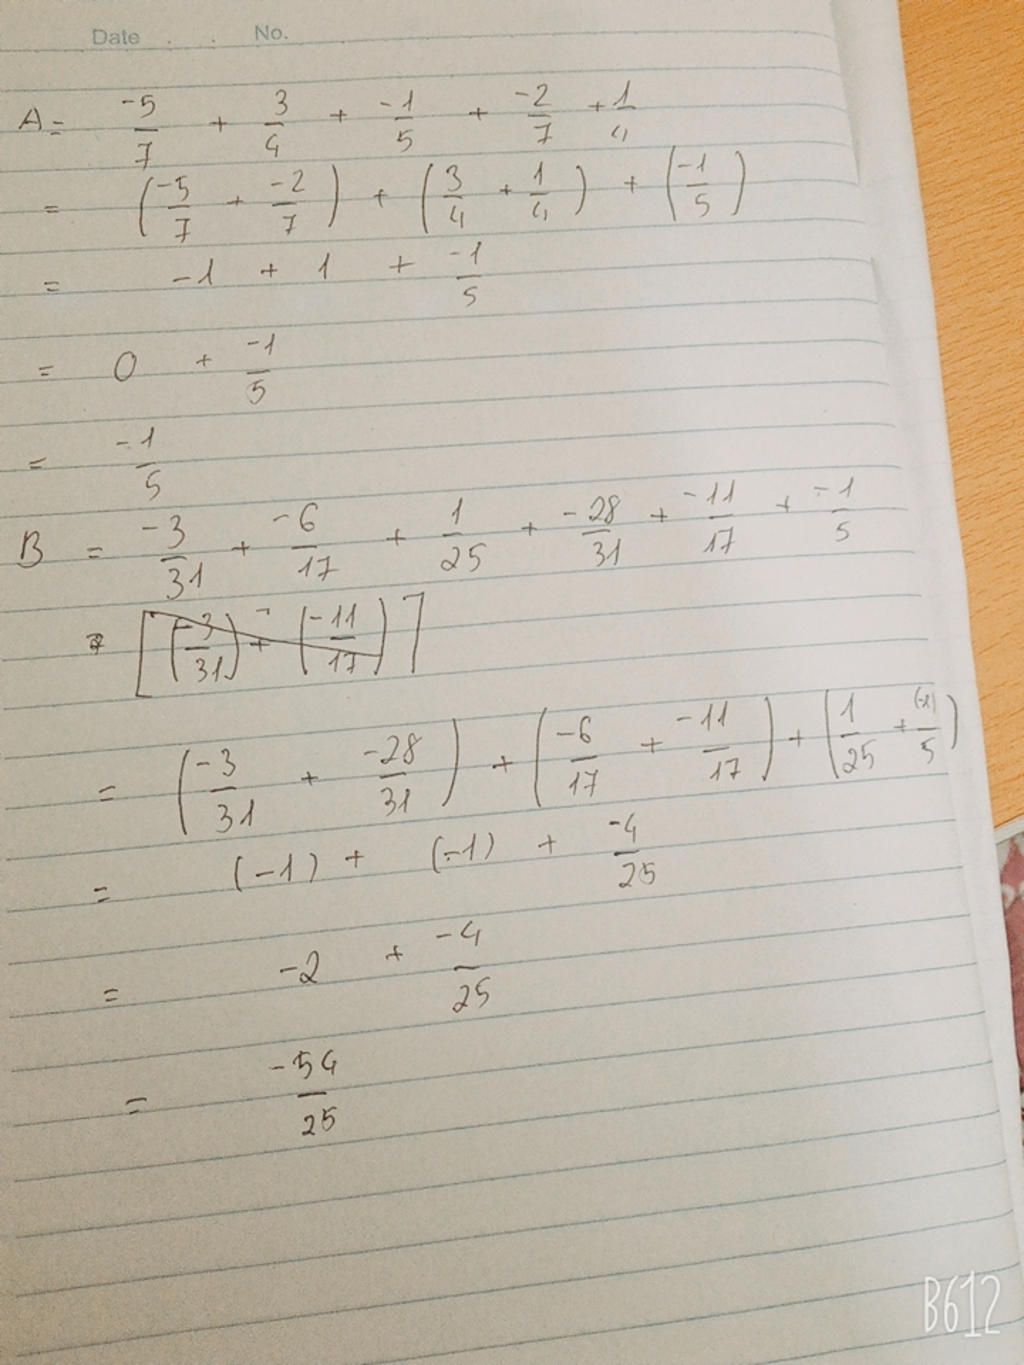 Date . . No.
A = -5/7 + 3/4 + -1/5 + -2/7 + 1/4
= (-5/7 + -2/7) + (3/4 + 1/4) + (-1/5)
= -1 + 1 + -1/5
= 0 + -1/5
= -1/5
B = -3/31 + -6/17 + 1/25 + -28/31 + -11/17 + -1/5
= [(-3/31) + (-11/17)]
= (-3/31 + -28/31) + (-6/17 + -11/17) + (1/25 + (-1)/5)
= (-1) + (-1) + -4/25
= -2 + -4/25
= -54/25
B612